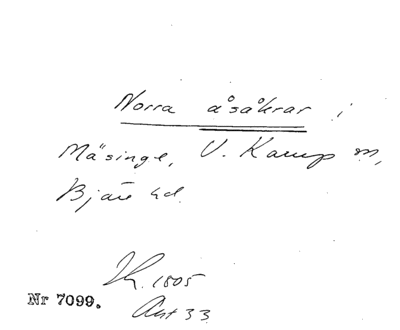 Norra åsåkrar i
Mäsinge, V. Karup sn,
Bjäre hd.
Lk. 1805
Akt 33
Nr 7099.